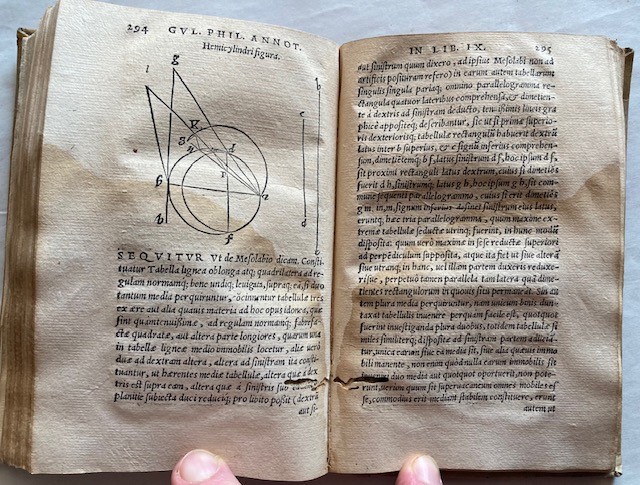 294 GVL. PHIL. ANNOT.
Hemicylindri figura.
SEQVITVR Vt de Mesolabio dicam. Consti-
tuatur Tabella lignea oblonga atq; quadrilatera ad re-
gulam normamq; bene undiq; leuigata, supraq; ea, si duo
tantum media perquiruntur, tabellulæ tres
ex ære aut alia quauis materia ad hoc opus idonea, quæ
sint quàm tenuissimæ, ad regulam normamq; fabrefa-
ctæ quadratæ, aut altera parte longiores, quarum una
in tabellæ ligneæ medio immobilis locetur, aliæ uerò
duæ ad dextram altera, altera ad sinistram ita consti-
tuantur, ut hærentes mediæ tabellulæ, altera quæ à dex
tris est supra eam, altera quæ à sinistris sub
planitie subiecta duci reduciq; pro libito possit (dextrū
aut si-
IN LIB. IX. 295
aut sinistrum quum dixero, ad ipsius Mesolabi non ad
artificis posituram refero) in earum autem tabellarum
singulis singula pariaq; omnino parallelogramma re-
ctangula quatuor lateribus comprehensa, & dimetien-
te à dextris ad sinistram deducto, tenuissimis lineis gra
phicè appositeq; describantur, sic ut si primæ superio-
ris dexteriorisq; tabellulæ rectangulū habuerit dextrū
latus inter b superius, & c signū inferius comprehen-
sum, dimetiētemq; b f, latus sinistrum d f, hoc ipsum d f,
sit proximi rectanguli latus dextrum, cuius si dimetiēs
fuerit d h, sinistrumq; latus g h, hoc ipsum g h, sit com-
mune sequenti parallelogrammo, cuius si erit dimetiēs
g m, in m, signum sinistrum eius latus,
eruntq; hæc tria parallelogramma, quum maxime ex-
tremæ tabellulæ seductæ utrinq; fuerint, in hunc modū
disposita: quum uerò maxime in sese reductæ superiori
ad perpēdiculum supposita, atque ita fiet ut siue altera
siue utranq; in hanc, uel illam partem duxeris reduxe-
risue, perpetuò tamen parallela tam latera quā dime-
tientes rectangulorum in quouis situ permaneāt. Sin au
tem plura media perquirantur, nam unicum bonis dun-
taxat tabellulis inuenire perquam facile est, quotquot
fuerint inuestiganda plura duobus, totidem tabellulæ si
miles similiterq; dispositæ ad sinistram partem adiicia-
tur, unica earum siue ea media sit, siue alia quæuis immo
bili manente, non enim quòd nulla earum immobilis sit
duo media aut quotquot oportuerit, non pote-
runt, uerum quum sit superuacaneum omnes mobiles es
se, commodius erit mediam stabilem constituere, erunt
autem ut